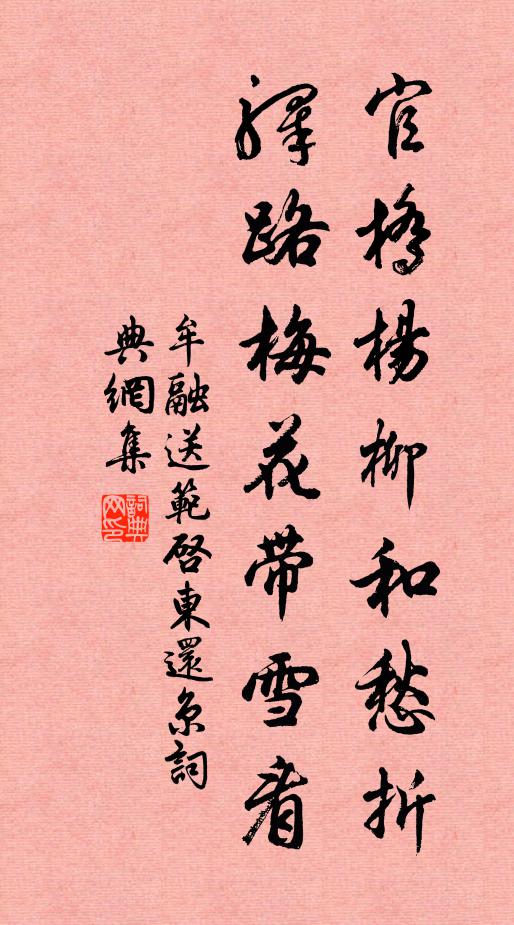 官橋楊柳和愁折
驛路梅花帶雪看
牟融送範啓東還京詞
典網集
詞典網印